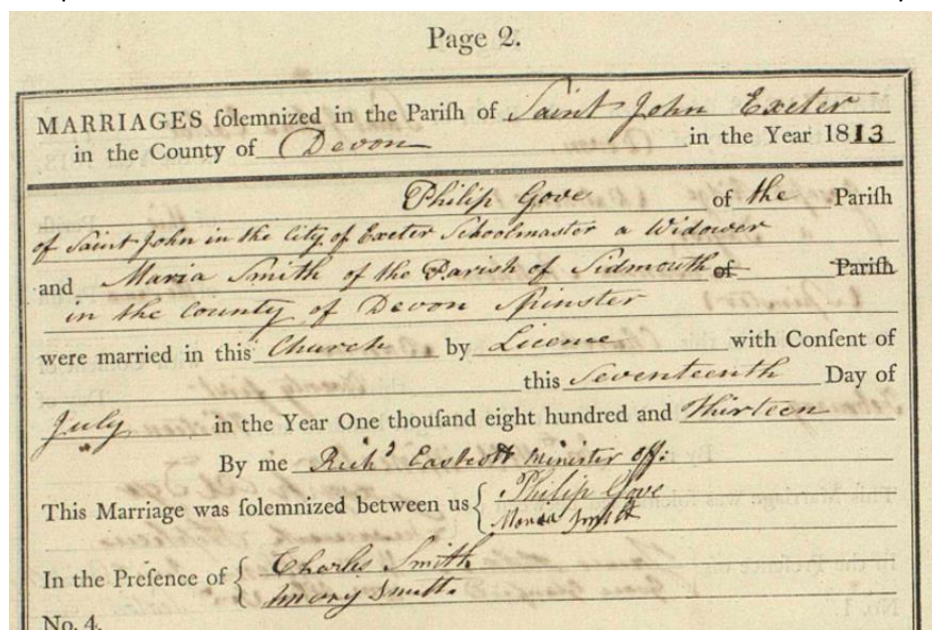 Page 2.
MARRIAGES ſolemnized in the Pariſh of Saint John Exeter
in the County of Devon in the Year 1813
Philip Gove of the Pariſh
of Saint John in the City of Exeter Schoolmaster a Widower
and Maria Smith of the Parish of Sidmouth of Pariſh
in the County of Devon Spinster
were married in this Church by Licence with Conſent of
this Seventeenth Day of
July in the Year One thouſand eight hundred and Thirteen
By me Richd Eastcott Minister off:
This Marriage was ſolemnized between us { Philip Gove
Maria Smith
In the Preſence of { Charles Smith
Smith.
No. 4.